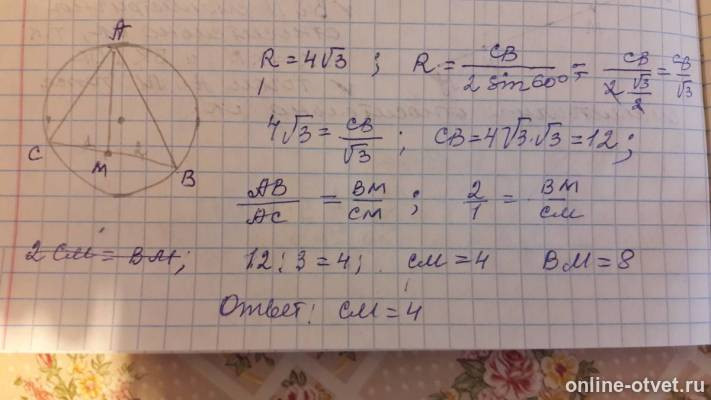 A
C
M
B
R = 4√3 ; R = CB / 2 sin 60° = CB / 2 √3/2 = CB / √3
4√3 = CB / √3 ; CB = 4√3·√3 = 12 ;
AB / AC = BM / CM ; 2 / 1 = BM / CM
2 CM = BM ; 12 : 3 = 4 ; CM = 4 BM = 8
Ответ: CM = 4
online-otvet.ru